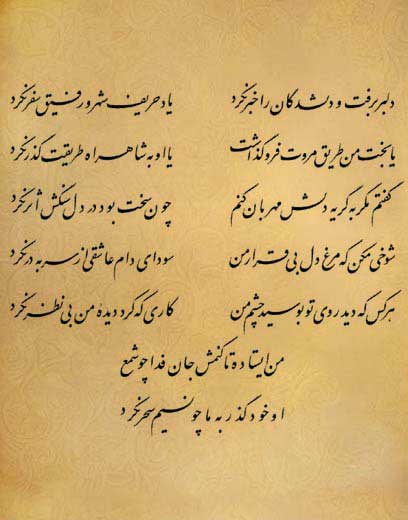 دلبر برفت و دلشدگان را خبر نکرد یاد حریف شهر و رفیق سفر نکرد
یا بخت من طریق مروت فروگذاشت یا او به شاهراه طریقت گذر نکرد
گفتم مگر به گریه دلش مهربان کنم چون سخت بود در دل سنگش اثر نکرد
شوخی مکن که مرغ دل بی قرار من سودای دام عاشقی از سر به در نکرد
هر کس که دید روی تو بوسید چشم من کاری که کرد دیدهٔ من بی نظر نکرد
من ایستاده تا کنمش جان فدا چو شمع
او خود گذر به ما چو نسیم سحر نکرد